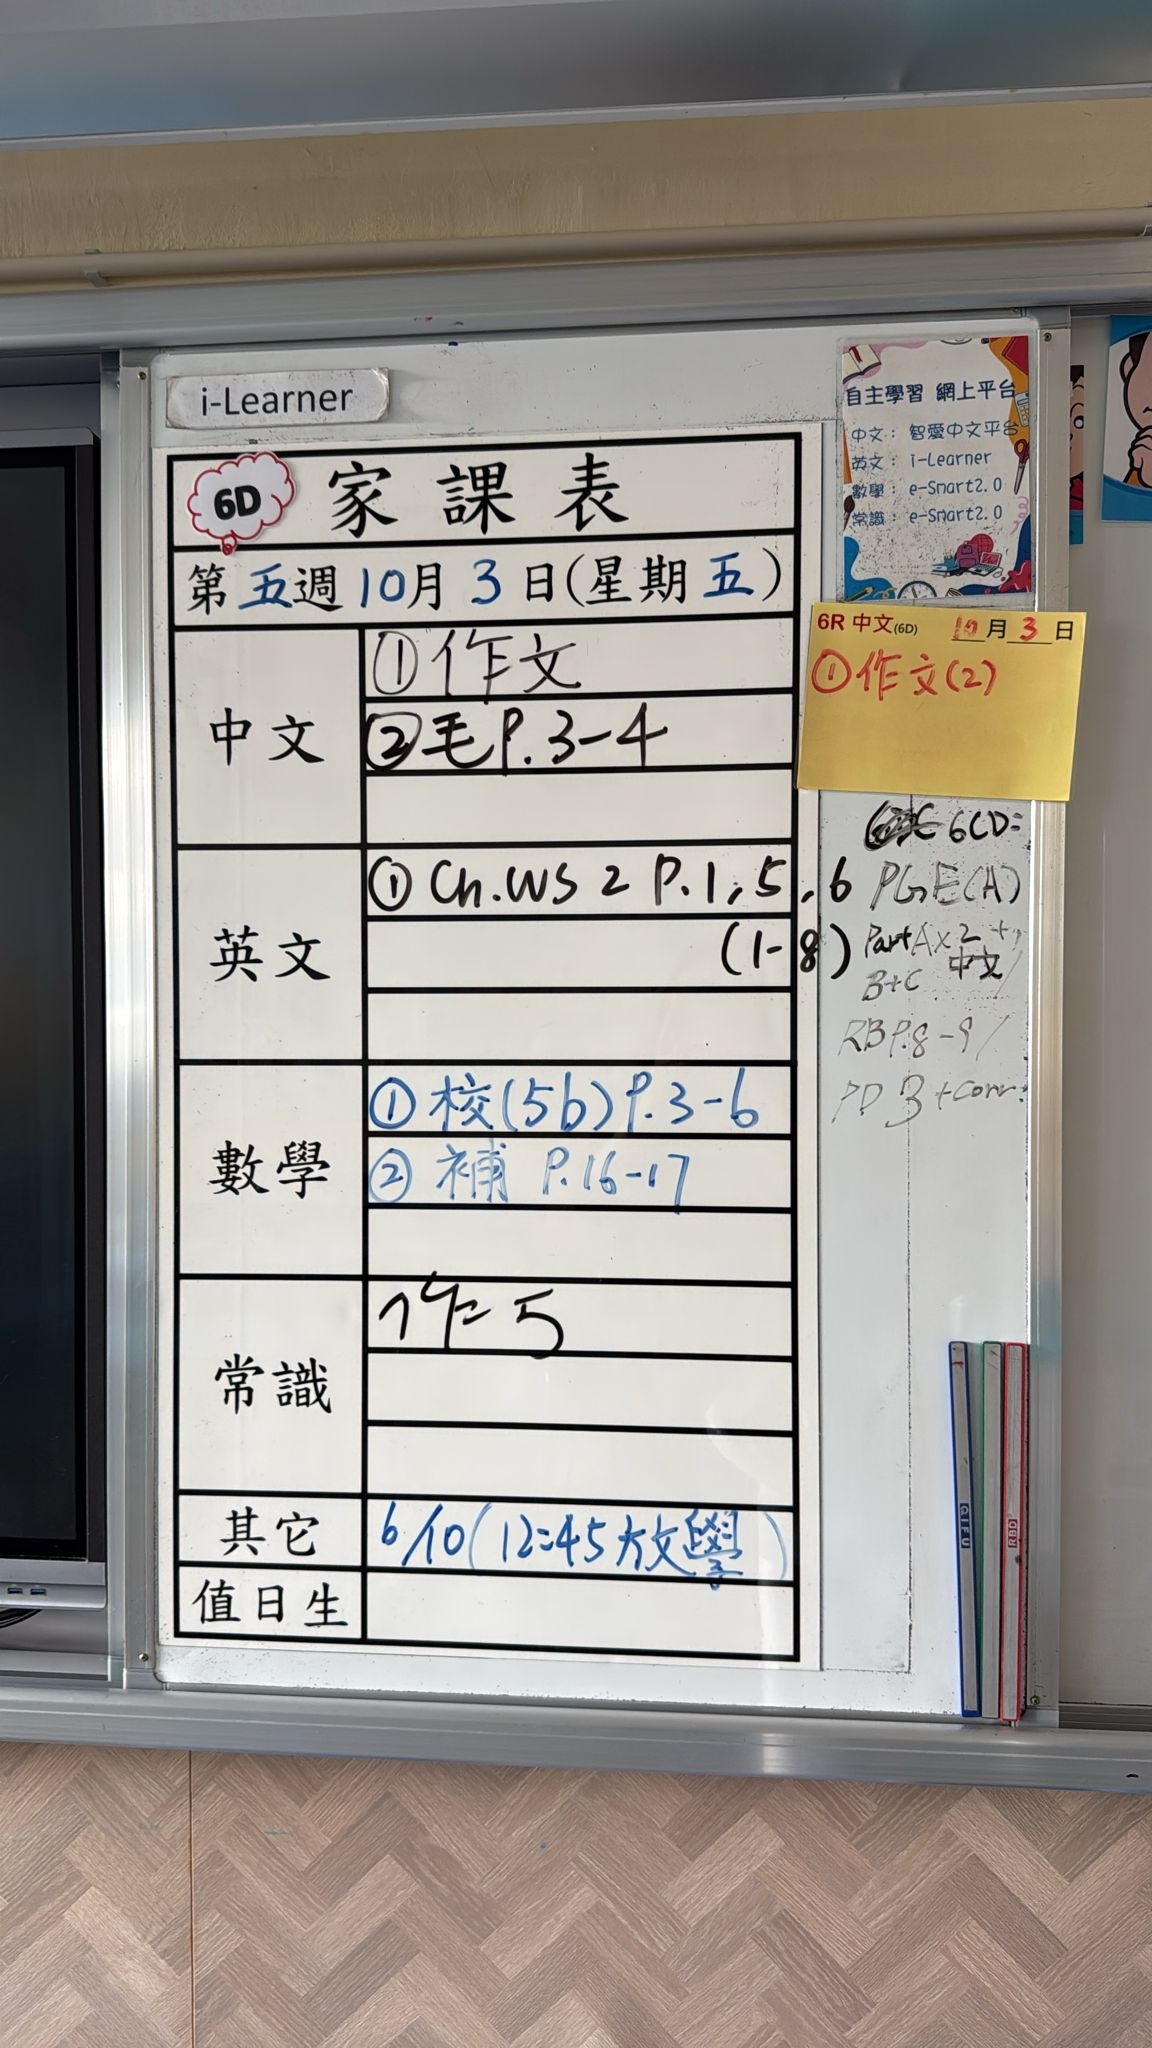 i-Learner
6D 家課表
第五週10月3日(星期五)
中文
①作文
②毛P.3-4
英文
① Ch.WS 2 P.1,5,6
(1-8)
數學
① 校(5b)P.3-6
② 補 P.16-17
常識
作 5
其它
6/10(12:45放學)
值日生
自主學習 網上平台
中文：智愛中文平台
英文：i-Learner
數學：e-Smart2.0
常識：e-Smart2.0
6R 中文(6D) 10月3日
①作文(2)
6CD:
PGE(A)
Part A x2 +
中文
B+C
RB P.8-9/
PD 3 +corr.
RBD